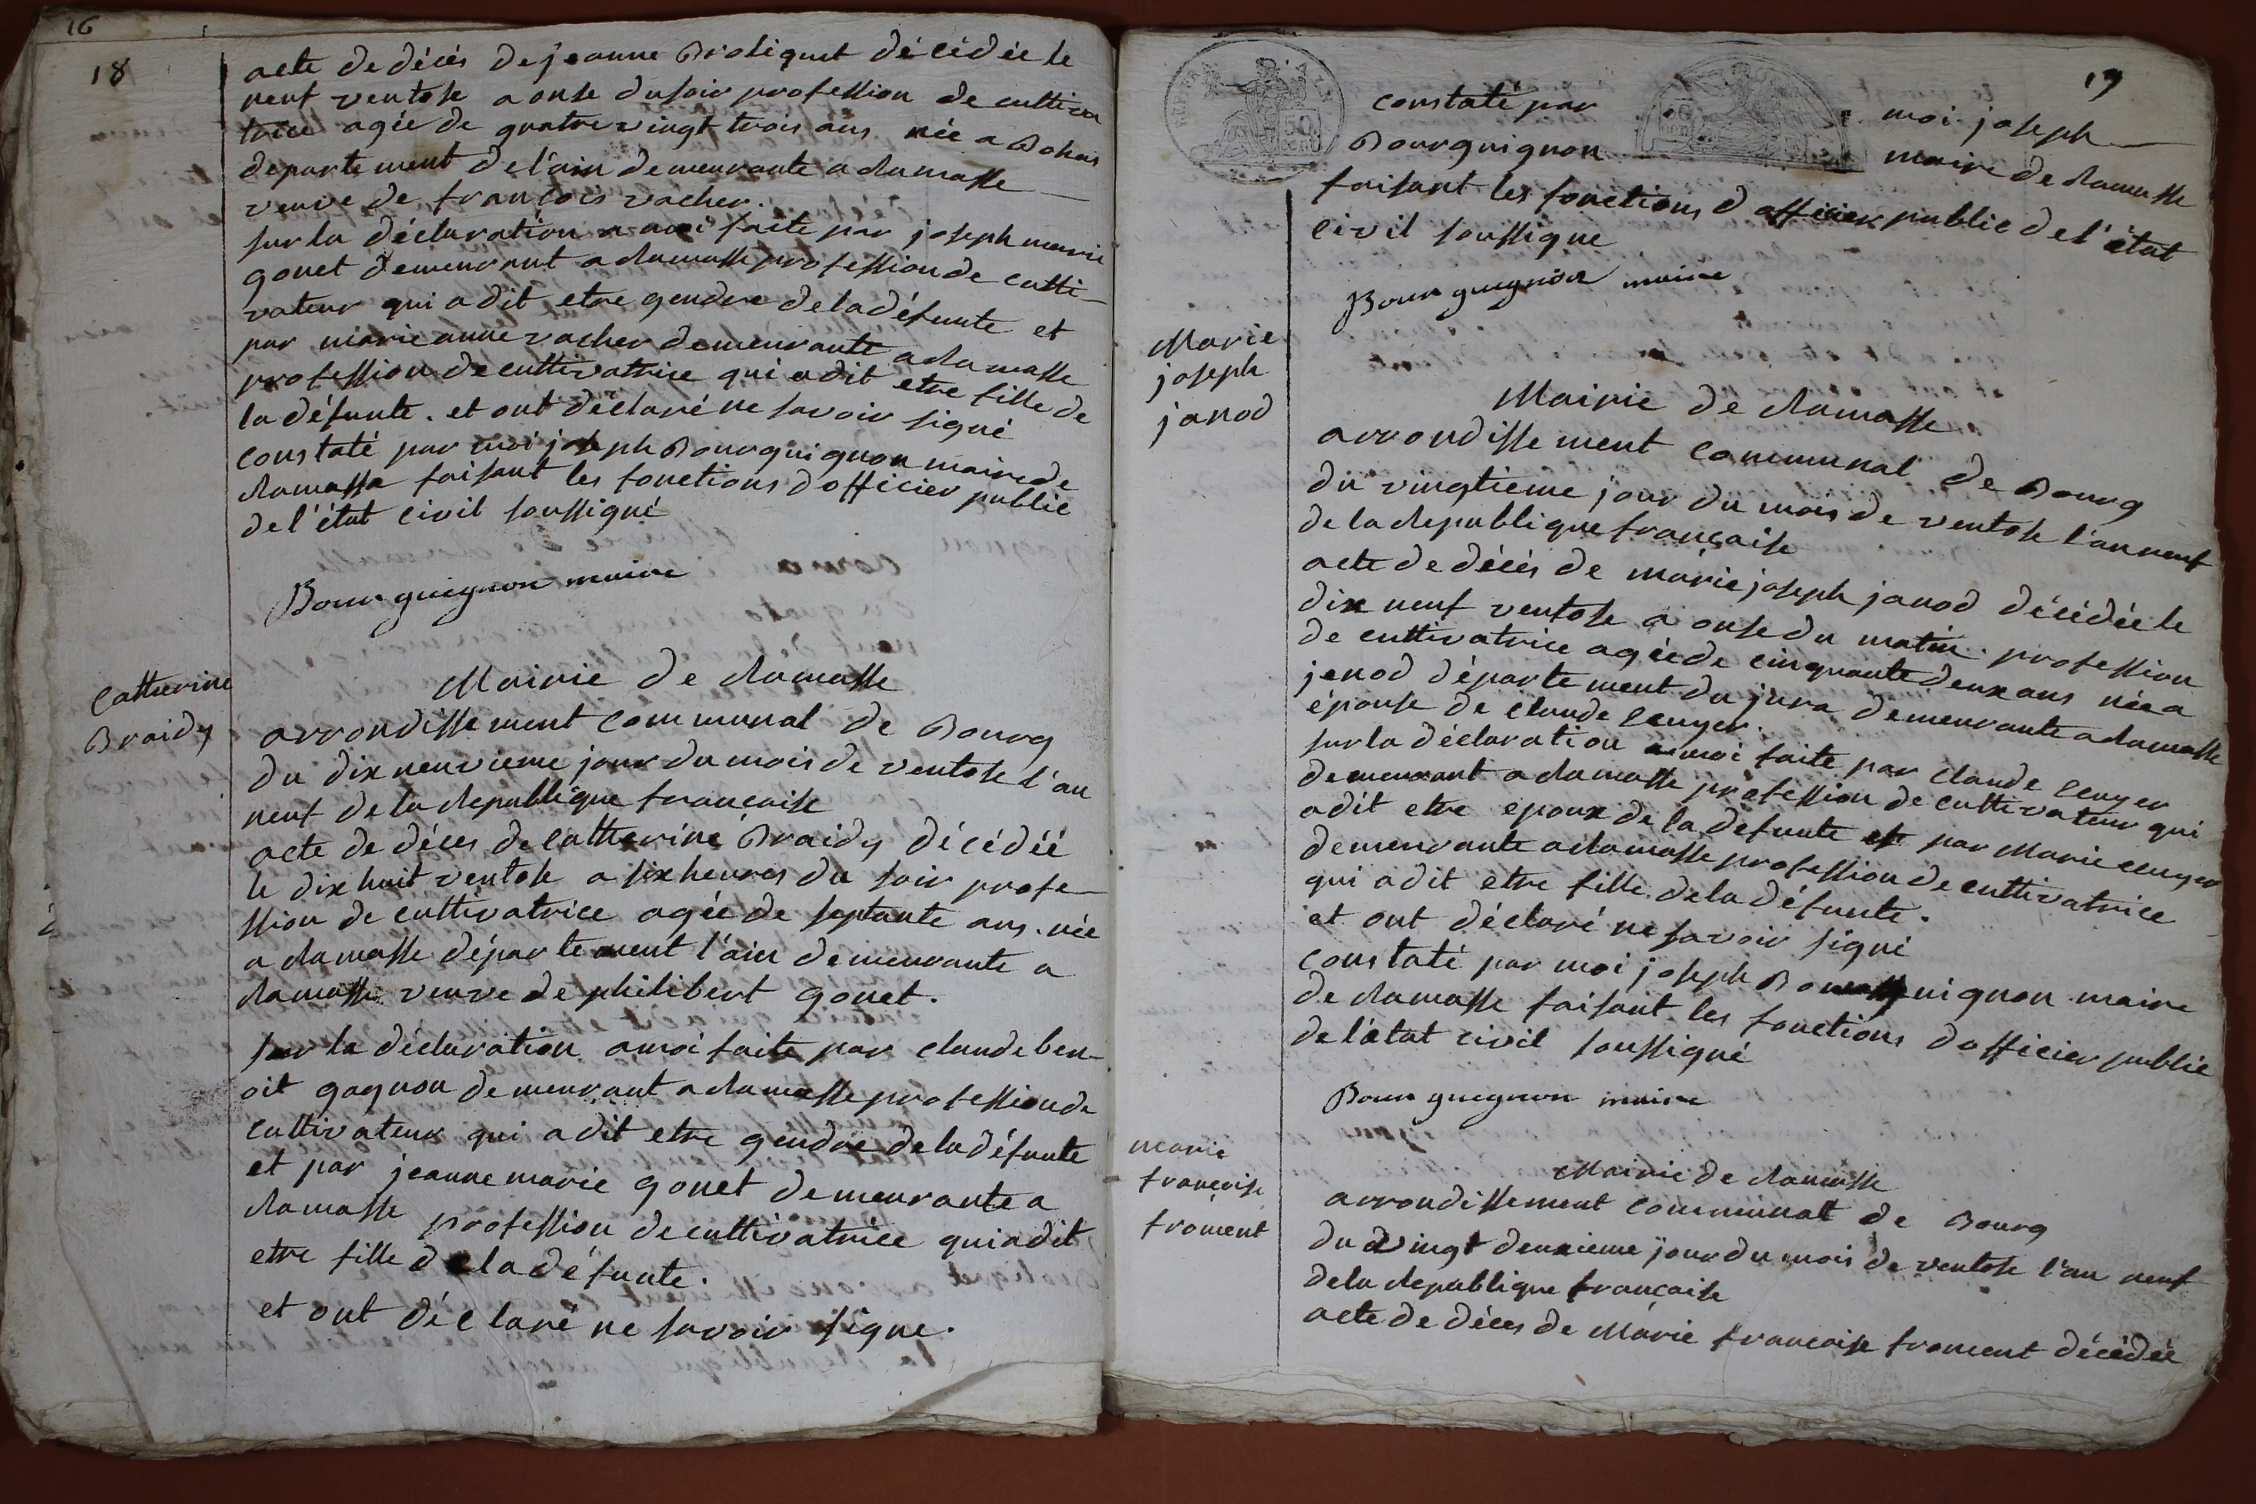 16
18
acte de décès de jeanne Broliquet décédée le
neuf ventose a onse du soir profession de cultiva
trice agée de quatre vingt trois ans née a Bohas
departement de l'ain demeurante a Ramasse
veuve de françois vacher.
sur la déclaration a moi faite par joseph marie
gonet demeurant a Ramasse profession de culti-
vateur qui a dit etre gendre de la défunte et
par marie anne vacher demeurante a Ramasse
profession de cultivatrice qui a dit etre fille de
la défunte. et ont déclaré ne savoir signé
constaté par moi joseph Bourguignon maire de
Ramasse faisant les fonctions d officier public
de l'état civil soussigné
Bourguignon maire
Catherine
Braidy
Mairie de Ramasse
arrondissement communal de Bourg
du dix neuvieme jour du mois de ventose l'an
neuf de la Republique francaise
acte de déces de catherine Braidy décédéé
le dix huit ventose a six heures du soir profe-
ssion de cultivatrice agée de septante ans. née
a Ramasse département l'ain demeurante a
Ramasse veuve de philibert gonet.
sur la déclaration a moi faite par claude ben-
oit gagnon demeurant a Ramasse profession de
cultivateur qui a dit etre gendre de la défunte
et par jeanne marie gonet demeurante a
Ramasse profession de cultivatrice qui a dit
etre fille de la défunte.
et ont déclaré ne savoir signe.
19
constaté par moi joseph
Bourguignon maire de Ramasse
faisant les fonctions d officier public de l'état
civil soussigne
Bourguignon maire
Marie
joseph
janod
Mairie de Ramasse
arrondissement communal de Bourg
du vingtieme jour du mois de ventose l'an neuf
de la Republique française
acte de décès de marie joseph janod décédée le
dix neuf ventose a onse du matin. profession
de cultivatrice agée de cinquante deux ans née a
jenod département du jura demeurante a Ramasse
épouse de claude cenger.
sur la déclaration a moi faite par claude cenger
demeurant a Ramasse profession de cultivateur qui
a dit etre epoux de la defunte et par Marie cenger
demeurante a Ramasse profession de cultivatrice
qui a dit etre fille de la défunte.
et ont déclaré ne savoir signé
constaté par moi joseph Bourguignon maire
de Ramasse faisant les fonctions d officier public
de l'état civil soussigné
Bourguignon maire
marie
francoise
froment
Mairie de Ramasse
arrondissement communal de Bourg
du vingt deuxieme jour du mois de ventose l'an neuf
de la Republique francaise
acte de déces de Marie francoise froment décédée